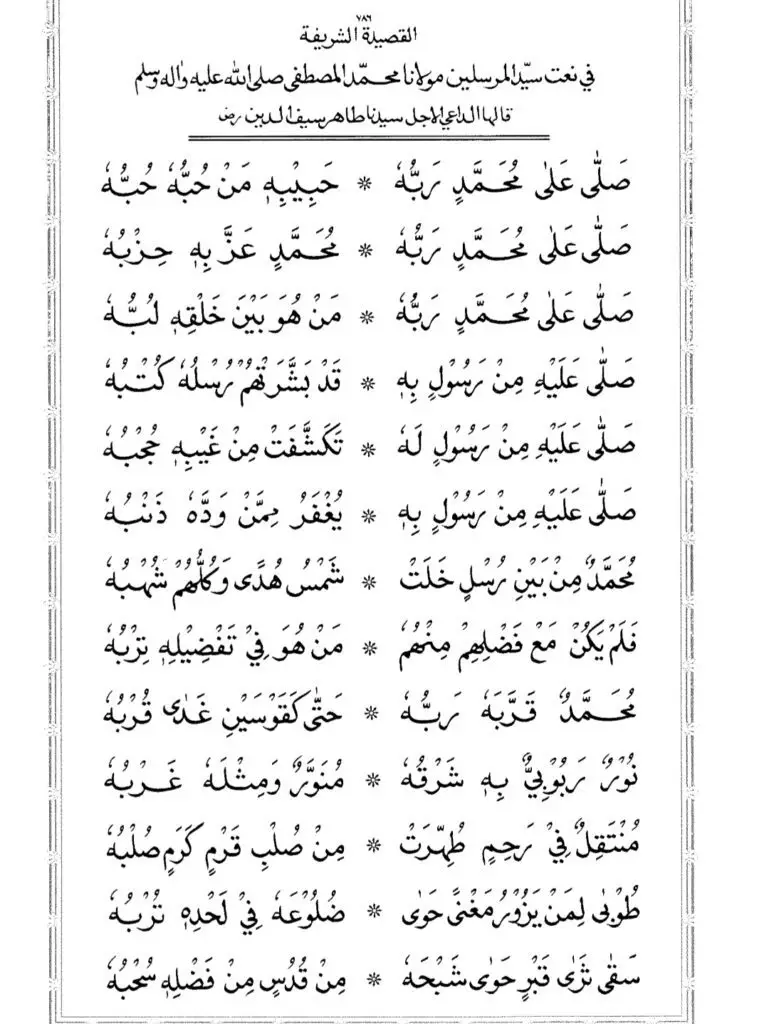 ٧٨٦
القصيدة الشريفة
في نعت سيّد المرسلين مولانا محمّد المصطفى صلى الله عليه واٰله وسلم
قالها الداعي الاجل سيدنا طاهر سيف الدين رض
صَلّٰى عَلٰى مُحَمَّدٍ رَبُّهٗ * حَبِيْبِهٖ مَنْ حُبُّهٗ حُبُّهٗ
صَلّٰى عَلٰى مُحَمَّدٍ رَبُّهٗ * مُحَمَّدٍ عَزَّ بِهٖ حِزْبُهٗ
صَلّٰى عَلٰى مُحَمَّدٍ رَبُّهٗ * مَنْ هُوَ بَيْنَ خَلْقِهٖ لُبُّهٗ
صَلّٰى عَلَيْهِ مِنْ رَسُوْلٍ بِهٖ * قَدْ بَشَّرَتْهُمْ رُسْلُهٗ كُتْبُهٗ
صَلّٰى عَلَيْهِ مِنْ رَسُوْلٍ لَهٗ * تَكَشَّفَتْ مِنْ غَيْبِهٖ حُجْبُهٗ
صَلّٰى عَلَيْهِ مِنْ رَسُوْلٍ بِهٖ * يُغْفَرُ مِمَّنْ وَدَّهٗ ذَنْبُهٗ
مُحَمَّدٌ مِنْ بَيْنِ رُسْلٍ خَلَتْ * شَمْسُ هُدًى وَكُلُّهُمْ شُهْبُهٗ
فَلَمْ يَكُنْ مَعْ فَضْلِهِمْ مِنْهُمْ * مَنْ هُوَ فِيْ تَفْضِيْلِهٖ تِرْبُهٗ
مُحَمَّدٌ قَرَّبَهٗ رَبُّهٗ * حَتّٰى كَقَوْسَيْنِ غَدٰى قُرْبُهٗ
نُوْرٌ رَبُوْبِيٌّ بِهٖ شَرْقُهٗ * مُنَوَّرٌ وَمِثْلَهٗ غَرْبُهٗ
مُنْتَقِلٌ فِيْ رَحِمٍ طُهِّرَتْ * مِنْ صُلْبِ قَرْمٍ كَرَمٍ صُلْبُهٗ
طُوْبٰى لِمَنْ يَزُوْرُ مَغْنًى حَوٰى * ضُلُوْعَهٗ فِيْ لَحْدِهٖ تُرْبُهٗ
سَقٰى ثَرٰى قَبْرٍ حَوٰى شَبْحَهٗ * مِنْ قُدْسٍ مِنْ فَضْلِهٖ سُحْبُهٗ